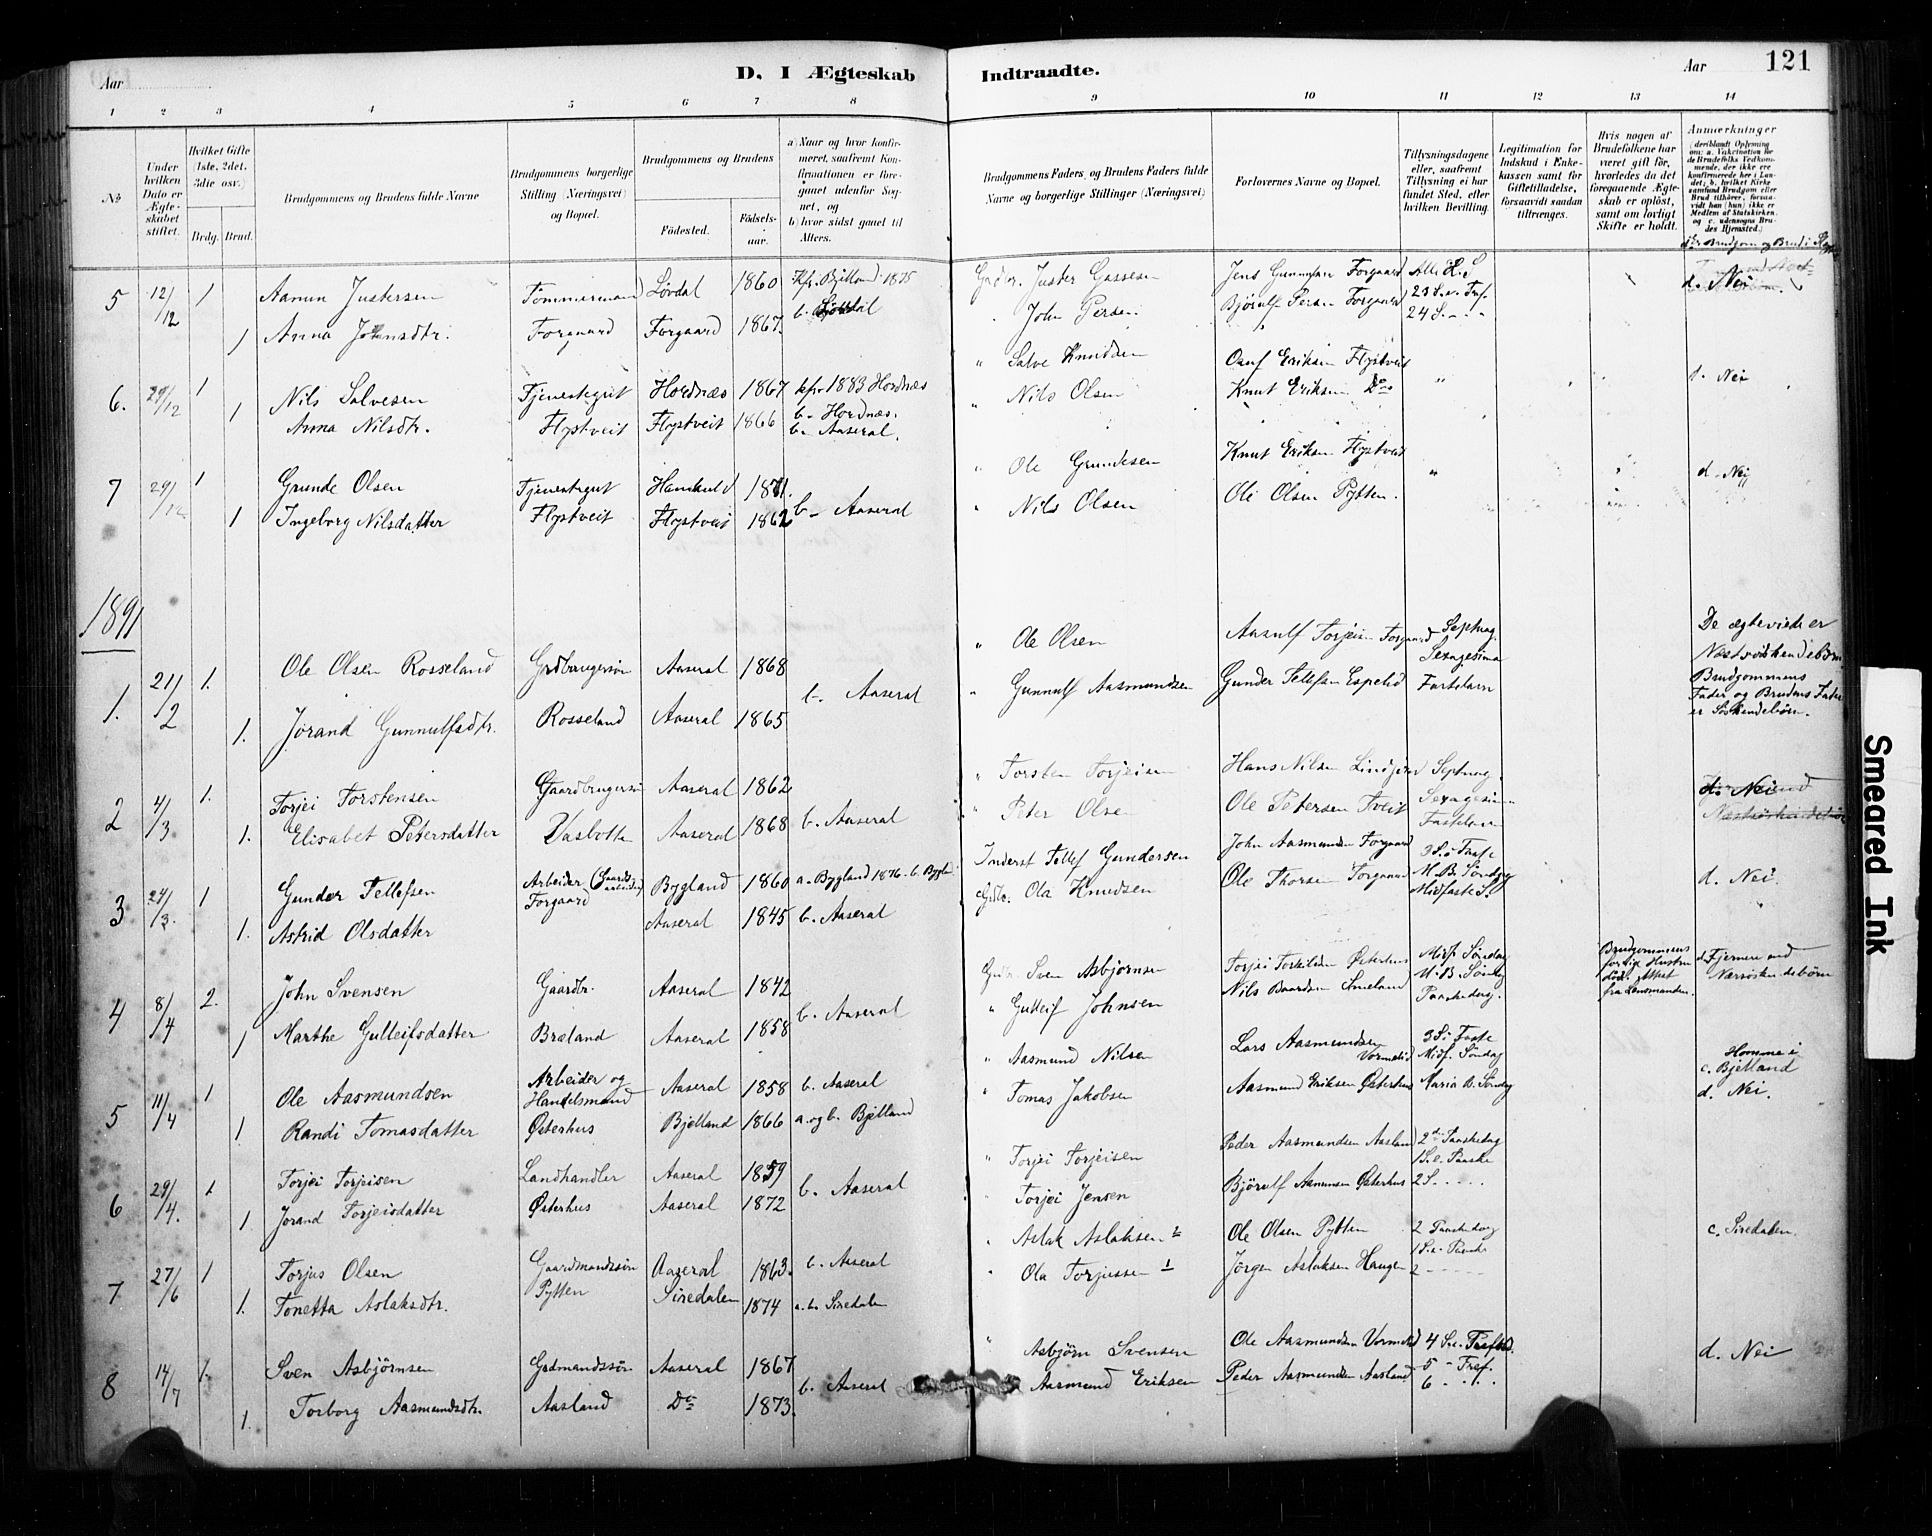 Aar
D. I Ægteskab
Indtraadte.
Aar 121
1 2 3 4 5 6 7 8 9 10 11 12 13 14
№
Under hvilken Dato er Ægteskabet stiftet.
Hvilket Gifte (1ste, 2det, 3die osv.)
Brdg. Brud.
Brudgommens og Brudens fulde Navne
Brudgommens borgerlige Stilling (Næringsvei) og Bopæl.
Brudgommens og Brudens
Fødested.
Fødselsaar.
a) Naar og hvor konfirmeret, saafremt Konfirmationen er foregaaet udenfor Sognet, og
b) hvor sidst gaaet til Alters.
Brudgommens Faders og Brudens Faders fulde Navne og borgerlige Stillinger (Næringsvei)
Forlovernes Navne og Bopæl.
Tillysningsdagene eller, saafremt Tillysning ei har fundet Sted, efter hvilken Bevilling.
Legitimation for Indskud i Enkekassen samt for Giftetilladelse, forsaavidt saadan tiltrænges.
Hvis nogen af Brudefolkene har været gift før, hvorledes da det foregaaende Ægteskab er opløst, samt om lovligt Skifte er holdt.
Anmærkninger (deriblandt Oplysning om: a. Vakcination for de Brudefolks Vedkommende, der ikke ere konfirmerede her i Landet; b. hvilket Kirkesamfund Brudgom eller Brud tilhører, forsaavidt han (hun) ikke er Medlem af Statskirken, og c. udensogns Brudes Hjemsted.)
5 12/12 1 Aanun Justersen Tømmermand Løvdal 1860 Kfr. Bjelland 1875 Juster Gassesen Jens Gunnufsen Forgaard
1 Anna Johnsdtr. Forgaard Forgaard 1867 John Persen Bjørulf Persen Forgaard 23 S. e. Tref. d. Nei
24 S. "
6. 29/12 1 Nils Salvesen Tjenestegut Hordnæs 1867 kfr 1883 Hordnæs " Salve Knudsen Oluf Eriksen Flystveit " d. Nei
1 Anna Nilsdtr. Flystveit Flystveit 1866 b. Hordnæs. b. Aaseral. " Nils Olsen Knut Eriksen Do
7 29/12 1 Grunde Olsen Tjenestegut 1871. b. Aaseral " Ole Grundesen Knut Eriksen Flystveit " d. Nei
1 Ingeborg Nilsdatter Flystveit Flystveit 1862 " Nils Olsen Ole Olsen Pytten.
1891
1. 21/2 1. Ole Olsen Rosseland Grdbrugersøn Aaseral 1868 b. Aaseral " Ole Olsen Aasulf Torjeisen Forgaard Septuag. De ægteviede er Næstsøskendebørn
1. Jorand Gunnulfsdtr. Rosseland Aaseral 1865 " Gunnulf Aasmundsen Gunder Tellefsen Espelid Sexagesima Fastelavn Brudgommens Fader og Brudens Fader er Søskendebørn.
2 4/3 1. Torjei Torstensen Gaardbrugersøn Aaseral 1862 b. Aaseral " Torsten Torjeisen Hans Nilsen Septuag. d. Nei
1. Elisabet Petersdatter Vasbotten Aaseral 1868 " Peter Olsen Ole Petersen Tveit Sexagesima Fastelavn
3 24/3. 1 Gunder Tellefsen Arbeider (Gaardsarbeider) Forgaard Bygland 1860 a. Bygland 1876 b. Bygland Inderst Tellef Gundersen John Aasmundsen Forgaard 3 S. i Faste d. Nei.
1. Astrid Olsdatter Aaseral 1845 b. Aaseral Gdbr. Ola Knudsen Ole Thorsen Forgaard M. B. Søndag Midfaste S.
4 8/4 2. John Svensen Gaardbr. Aaseral 1842 b. Aaseral Gdbr. Sven Asbjørnsen Torjei Torkildsen Østerhus Midf. Søndag Brudgommens forrige Hustru død. Attest fra Lensmanden. d. Fjernere end Næstsøskendebørn
1 Marthe Gulleifsdatter Bræland Aaseral 1858 " Gulleif Johnsen Nils Baardsen Smeland M. B. Søndag Paaskedag.
5 11/4 1 Ole Aasmundsen Arbeider og Handelsmand Aaseral 1858 b. Aaseral " Aasmund Nilsen Lars Aasmundsen Vormelid 3 S. i Faste Midf. Søndag Homme i c. Bjelland
1 Randi Tomasdatter Østerhus Bjelland 1866 a. og b. Bjelland " Tomas Jakobsen Aasmund Eriksen Østerhus Maria B. Søndag d. Nei.
6 29/4. 1. Torjei Torjeisen Landhandler Aaseral 1859 b. Aaseral " Torjei Torjeisen Peder Aasmundsen Aasland 2d Paaskedag
1. Jorand Torjeisdatter Østerhus Aaseral 1872 " Torjei Jensen Bjørulf Aanunsen Østerhus 1 S. e. Paaske 2 S.
7 27/6 1 Torjus Olsen Gaardmandssøn Aaseral 1863. b. Aaseral " Aslak Aslaksen 2 Ole Olsen Pytten 2 Paaskedag c. Siredalen.
1. Tonetta Aslaksdtr. Pytten Siredalen 1874 a. b. Siredalen " Ola Torjussen 1 Jørgen Aslaksen Haugen 1 S. e. Paaske 2
8 14/7 1. Sven Asbjørnsen Gadmandssøn Aaseral 1867 b. Aaseral " Asbjørn Svensen Ole Aasmundsen Vormelid 4 S. e. d. Nei
1. Torborg Aasmundsdtr. Aasland Do 1873. Aasmund Eriksen Peder Aasmundsen Aasland 5 " Tref. 6
Smeared Ink